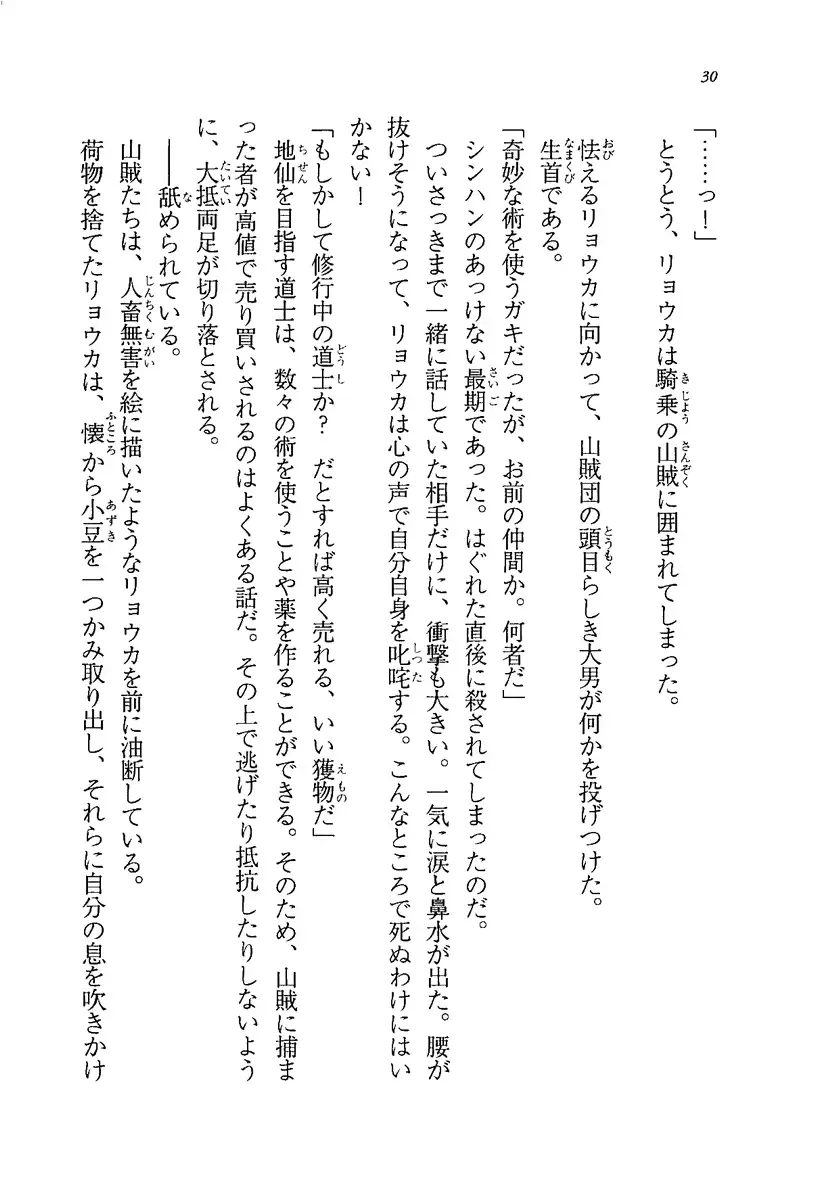 30
「……っ！」
とうとう、リョウカは騎乗の山賊に囲まれてしまった。
怯えるリョウカに向かって、山賊団の頭目らしき大男が何かを投げつけた。
生首である。
「奇妙な術を使うガキだったが、お前の仲間か。何者だ」
シンハンのあっけない最期であった。はぐれた直後に殺されてしまったのだ。
ついさっきまで一緒に話していた相手だけに、衝撃も大きい。一気に涙と鼻水が出た。腰が
抜けそうになって、リョウカは心の声で自分自身を叱咤する。こんなところで死ぬわけにはい
かない！
「もしかして修行中の道士か？　だとすれば高く売れる、いい獲物だ」
地仙を目指す道士は、数々の術を使うことや薬を作ることができる。そのため、山賊に捕ま
った者が高値で売り買いされるのはよくある話だ。その上で逃げたり抵抗したりしないよう
に、大抵両足が切り落とされる。
――舐められている。
山賊たちは、人畜無害を絵に描いたようなリョウカを前に油断している。
荷物を捨てたリョウカは、懐から小豆を一つかみ取り出し、それらに自分の息を吹きかけ